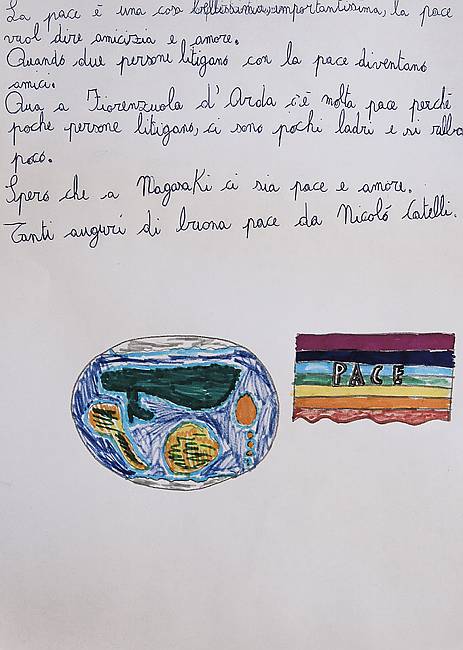 La pace è una cosa bellissima, importantissima, la pace
vuol dire amicizia e amore.
Quando due persone litigano con la pace diventano
amici.
Qua a Fiorenzuola d'Arda c'è molta pace perché
poche persone litigano, ci sono pochi ladri e si rubba
poco.
Spero che a Nagasaki ci sia pace e amore.
Tanti auguri di buona pace da Nicolò Catelli.
PACE